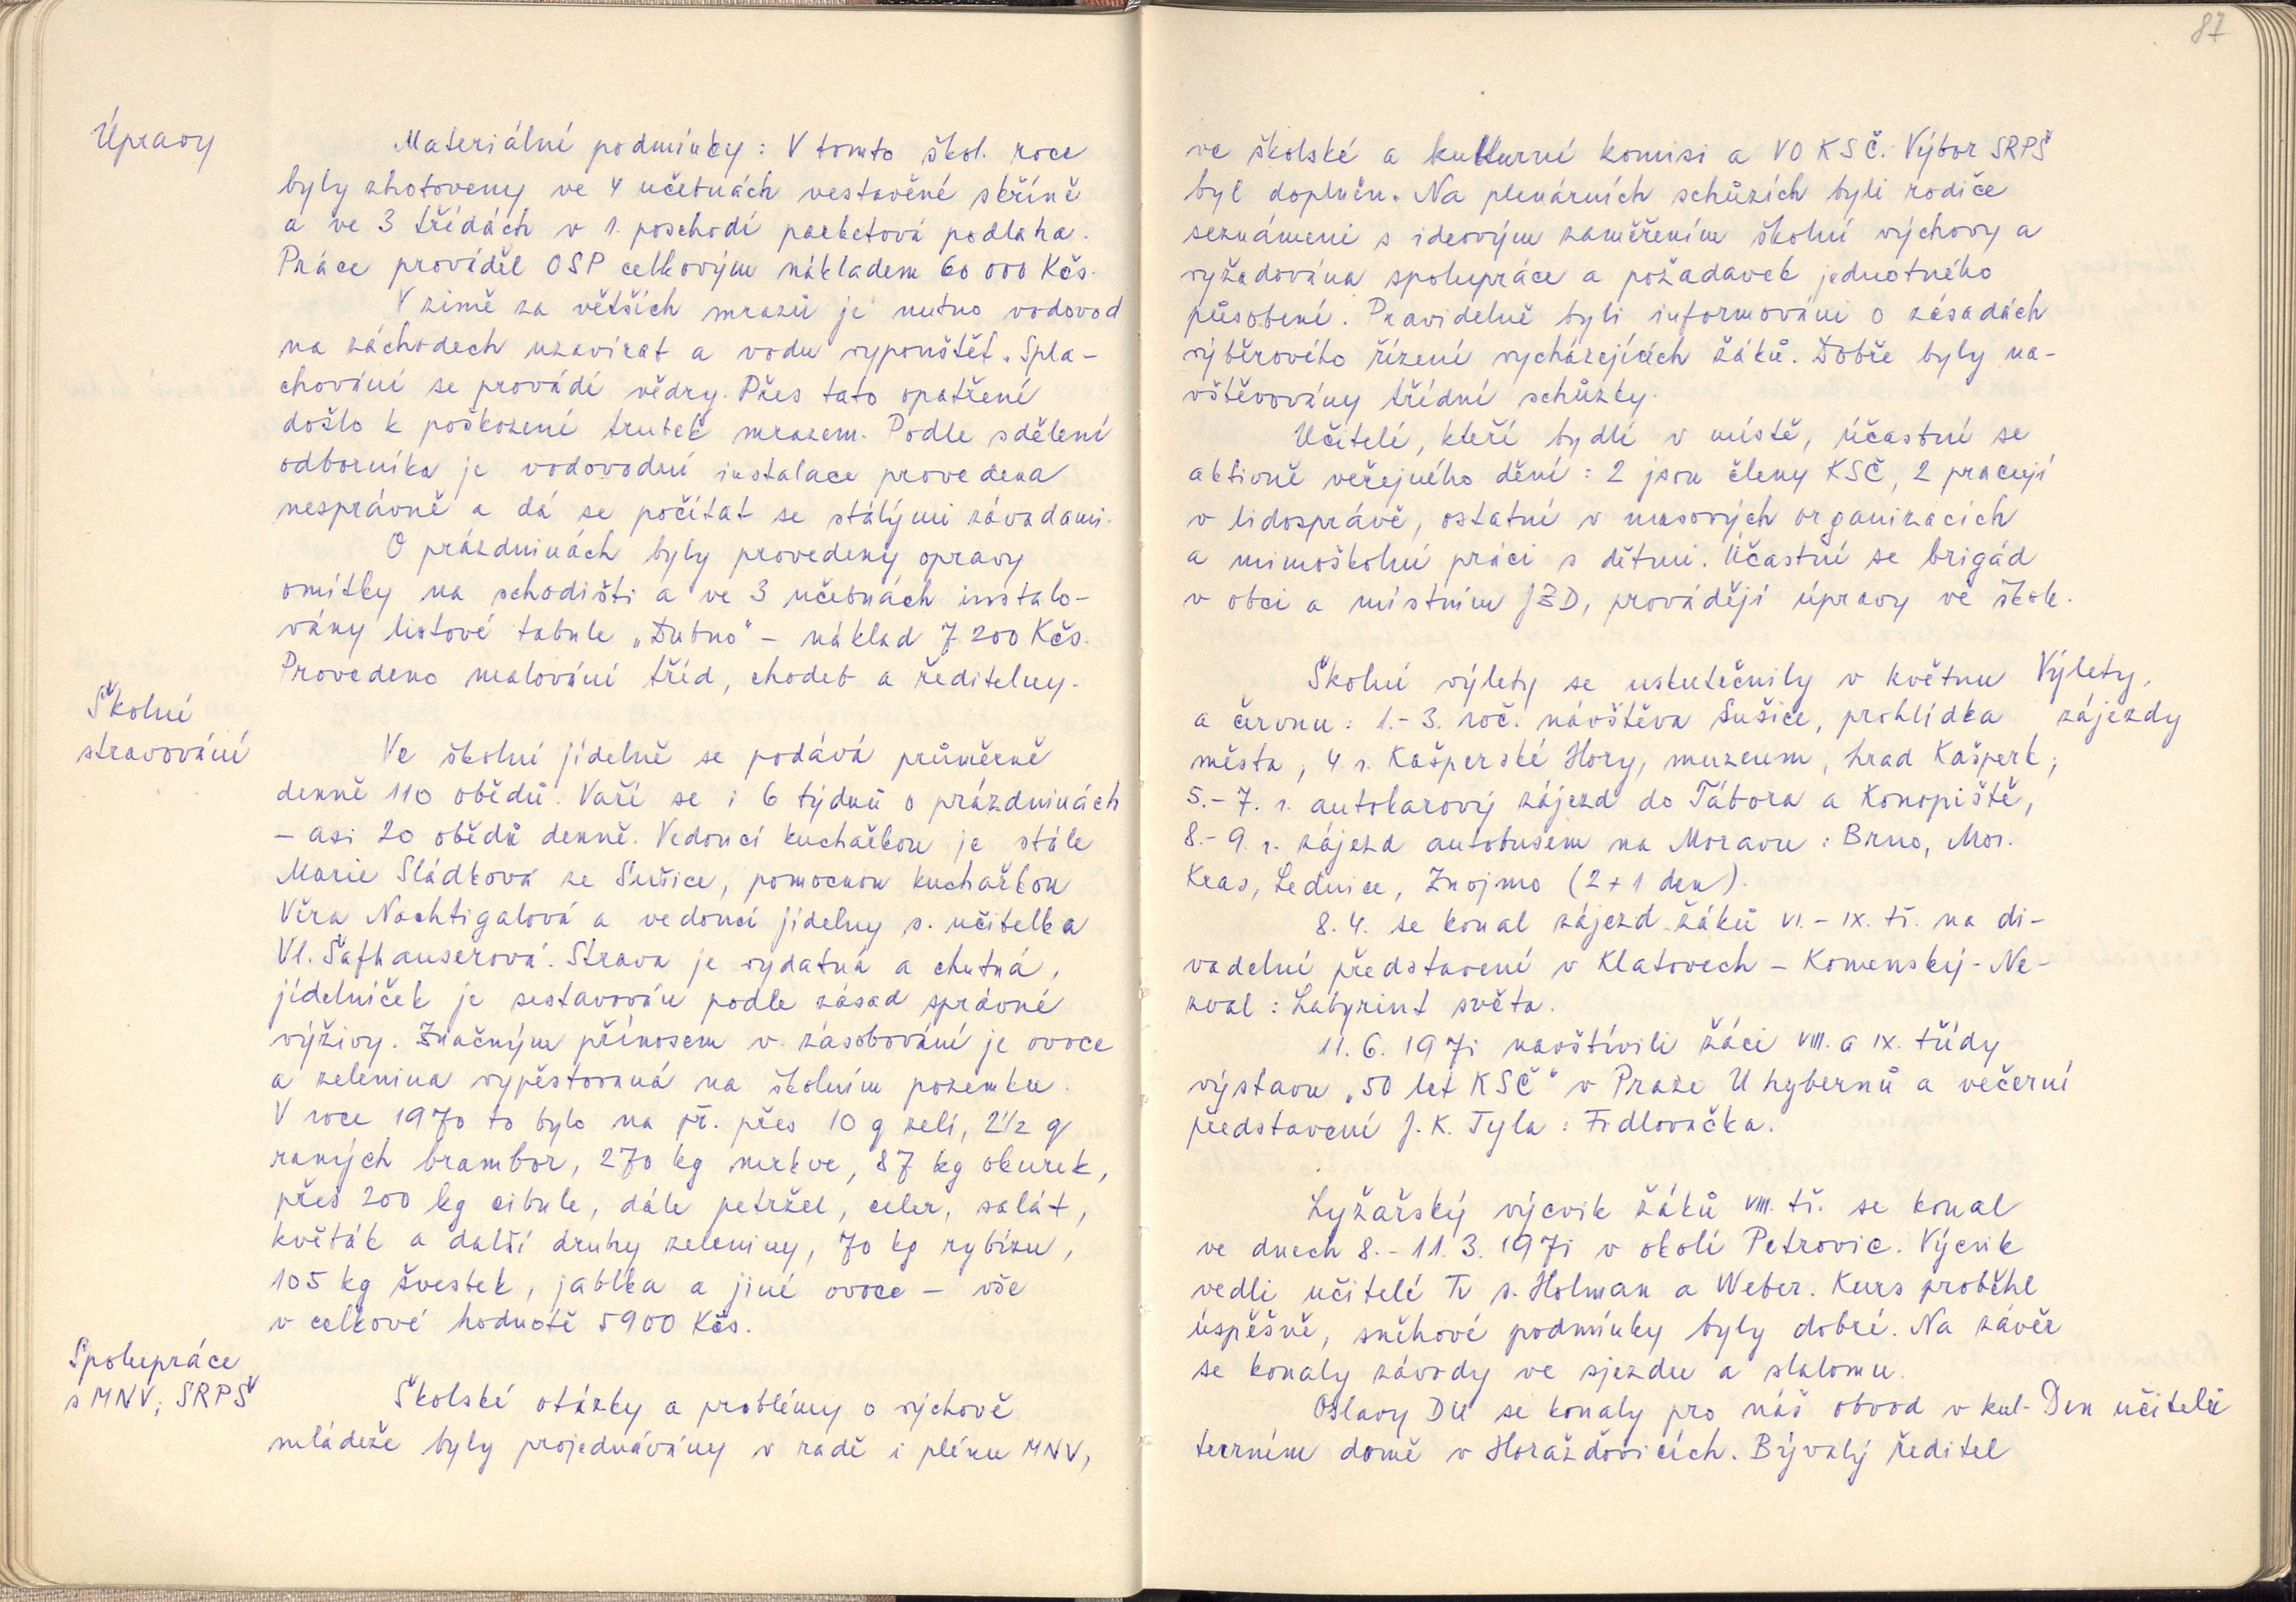 Úpravy
Materiální podmínky: V tomto škol. roce
byly zhotoveny ve 4 učebnách vestavěné skříně
a ve 3 třídách v 1. poschodí parketová podlaha.
Práce prováděl OSP celkovým nákladem 60 000 Kčs.
V zimě za větších mrazů je nutno vodovod
na záchodech uzavírat a vodu vypouštět. Spla-
chování se provádí vědry. Přes tato opatření
došlo k poškození trubek mrazem. Podle sdělení
odborníka je vodovodní instalace provedena
nesprávně a dá se počítat se stálými závadami.
O prázdninách byly provedeny opravy
omítky na schodišti a ve 3 učebnách instalo-
vány listové tabule „Dubno" - náklad 7 200 Kčs.
Provedeno malování tříd, chodeb a ředitelny.
Školní
stravování
Ve školní jídelně se podává průměrně
denně 110 obědů. Vaří se i 6 týdnů o prázdninách
- asi 20 obědů denně. Vedoucí kuchařkou je stále
Marie Sládková ze Sušice, pomocnou kuchařkou
Věra Nachtigalová a vedoucí jídelny s. učitelka
Vl. Šafhauserová. Strava je vydatná a chutná,
jídelníček je sestavován podle zásad správné
výživy. Značným přínosem v zásobování je ovoce
a zelenina vypěstovaná na školním pozemku.
V roce 1970 to bylo na př. přes 10 q zelí, 2 1/2 q
raných brambor, 270 kg mrkve, 87 kg okurek,
přes 200 kg cibule, dále petržel, celer, salát,
květák a další druhy zeleniny, 70 kg rybízu,
105 kg švestek, jablka a jiné ovoce - vše
v celkové hodnotě 5900 Kčs.
Spolupráce
s MNV, SRPŠ
Školské otázky a problémy o výchově
mládeže byly projednávány v radě i plénu MNV,
87
ve školské a kulturní komisi a VO KSČ. Výbor SRPŠ
byl doplněn. Na plenárních schůzích byli rodiče
seznámeni s ideovým zaměřením školní výchovy a
vyžadována spolupráce a požadavek jednotného
působení. Pravidelně byli informováni o zásadách
výběrového řízení vycházejících žáků. Dobře byly na-
vštěvovány třídní schůzky.
Učitelé, kteří bydlí v místě, účastní se
aktivně veřejného dění: 2 jsou členy KSČ, 2 pracují
v lidosprávě, ostatní v masových organizacích
a mimoškolní práci s dětmi. Účastní se brigád
v obci a místním JZD, provádějí úpravy ve škole.
Školní výlety se uskutečnily v květnu
a červnu: 1.-3. roč. návštěva Sušice, prohlídka
města, 4. r. Kašperské Hory, muzeum, hrad Kašperk,
5.-7. r. autokarový zájezd do Tábora a Konopiště,
8.-9. r. zájezd autobusem na Moravu: Brno, Mor.
Kras, Lednice, Znojmo (2+1 den).
Výlety,
zájezdy
8.4. se konal zájezd žáků VI.-IX. tř. na di-
vadelní představení v Klatovech - Komenský-Ne-
zval: Labyrint světa.
11. 6. 1971 navštívili žáci VIII. a IX. třídy
výstavu „50 let KSČ" v Praze U hybernů a večerní
představení J. K. Tyla: Fidlovačka.
Lyžařský výcvik žáků VIII. tř. se konal
ve dnech 8.-11.3. 1971 v okolí Petrovic. Výcvik
vedli učitelé Tv s. Holman a Weber. Kurs proběhl
úspěšně, sněhové podmínky byly dobré. Na závěr
se konaly závody ve sjezdu a slalomu.
Oslavy DU se konaly pro náš obvod v kul-
turním domě v Horažďovicích. Bývalý ředitel
Den učitelů